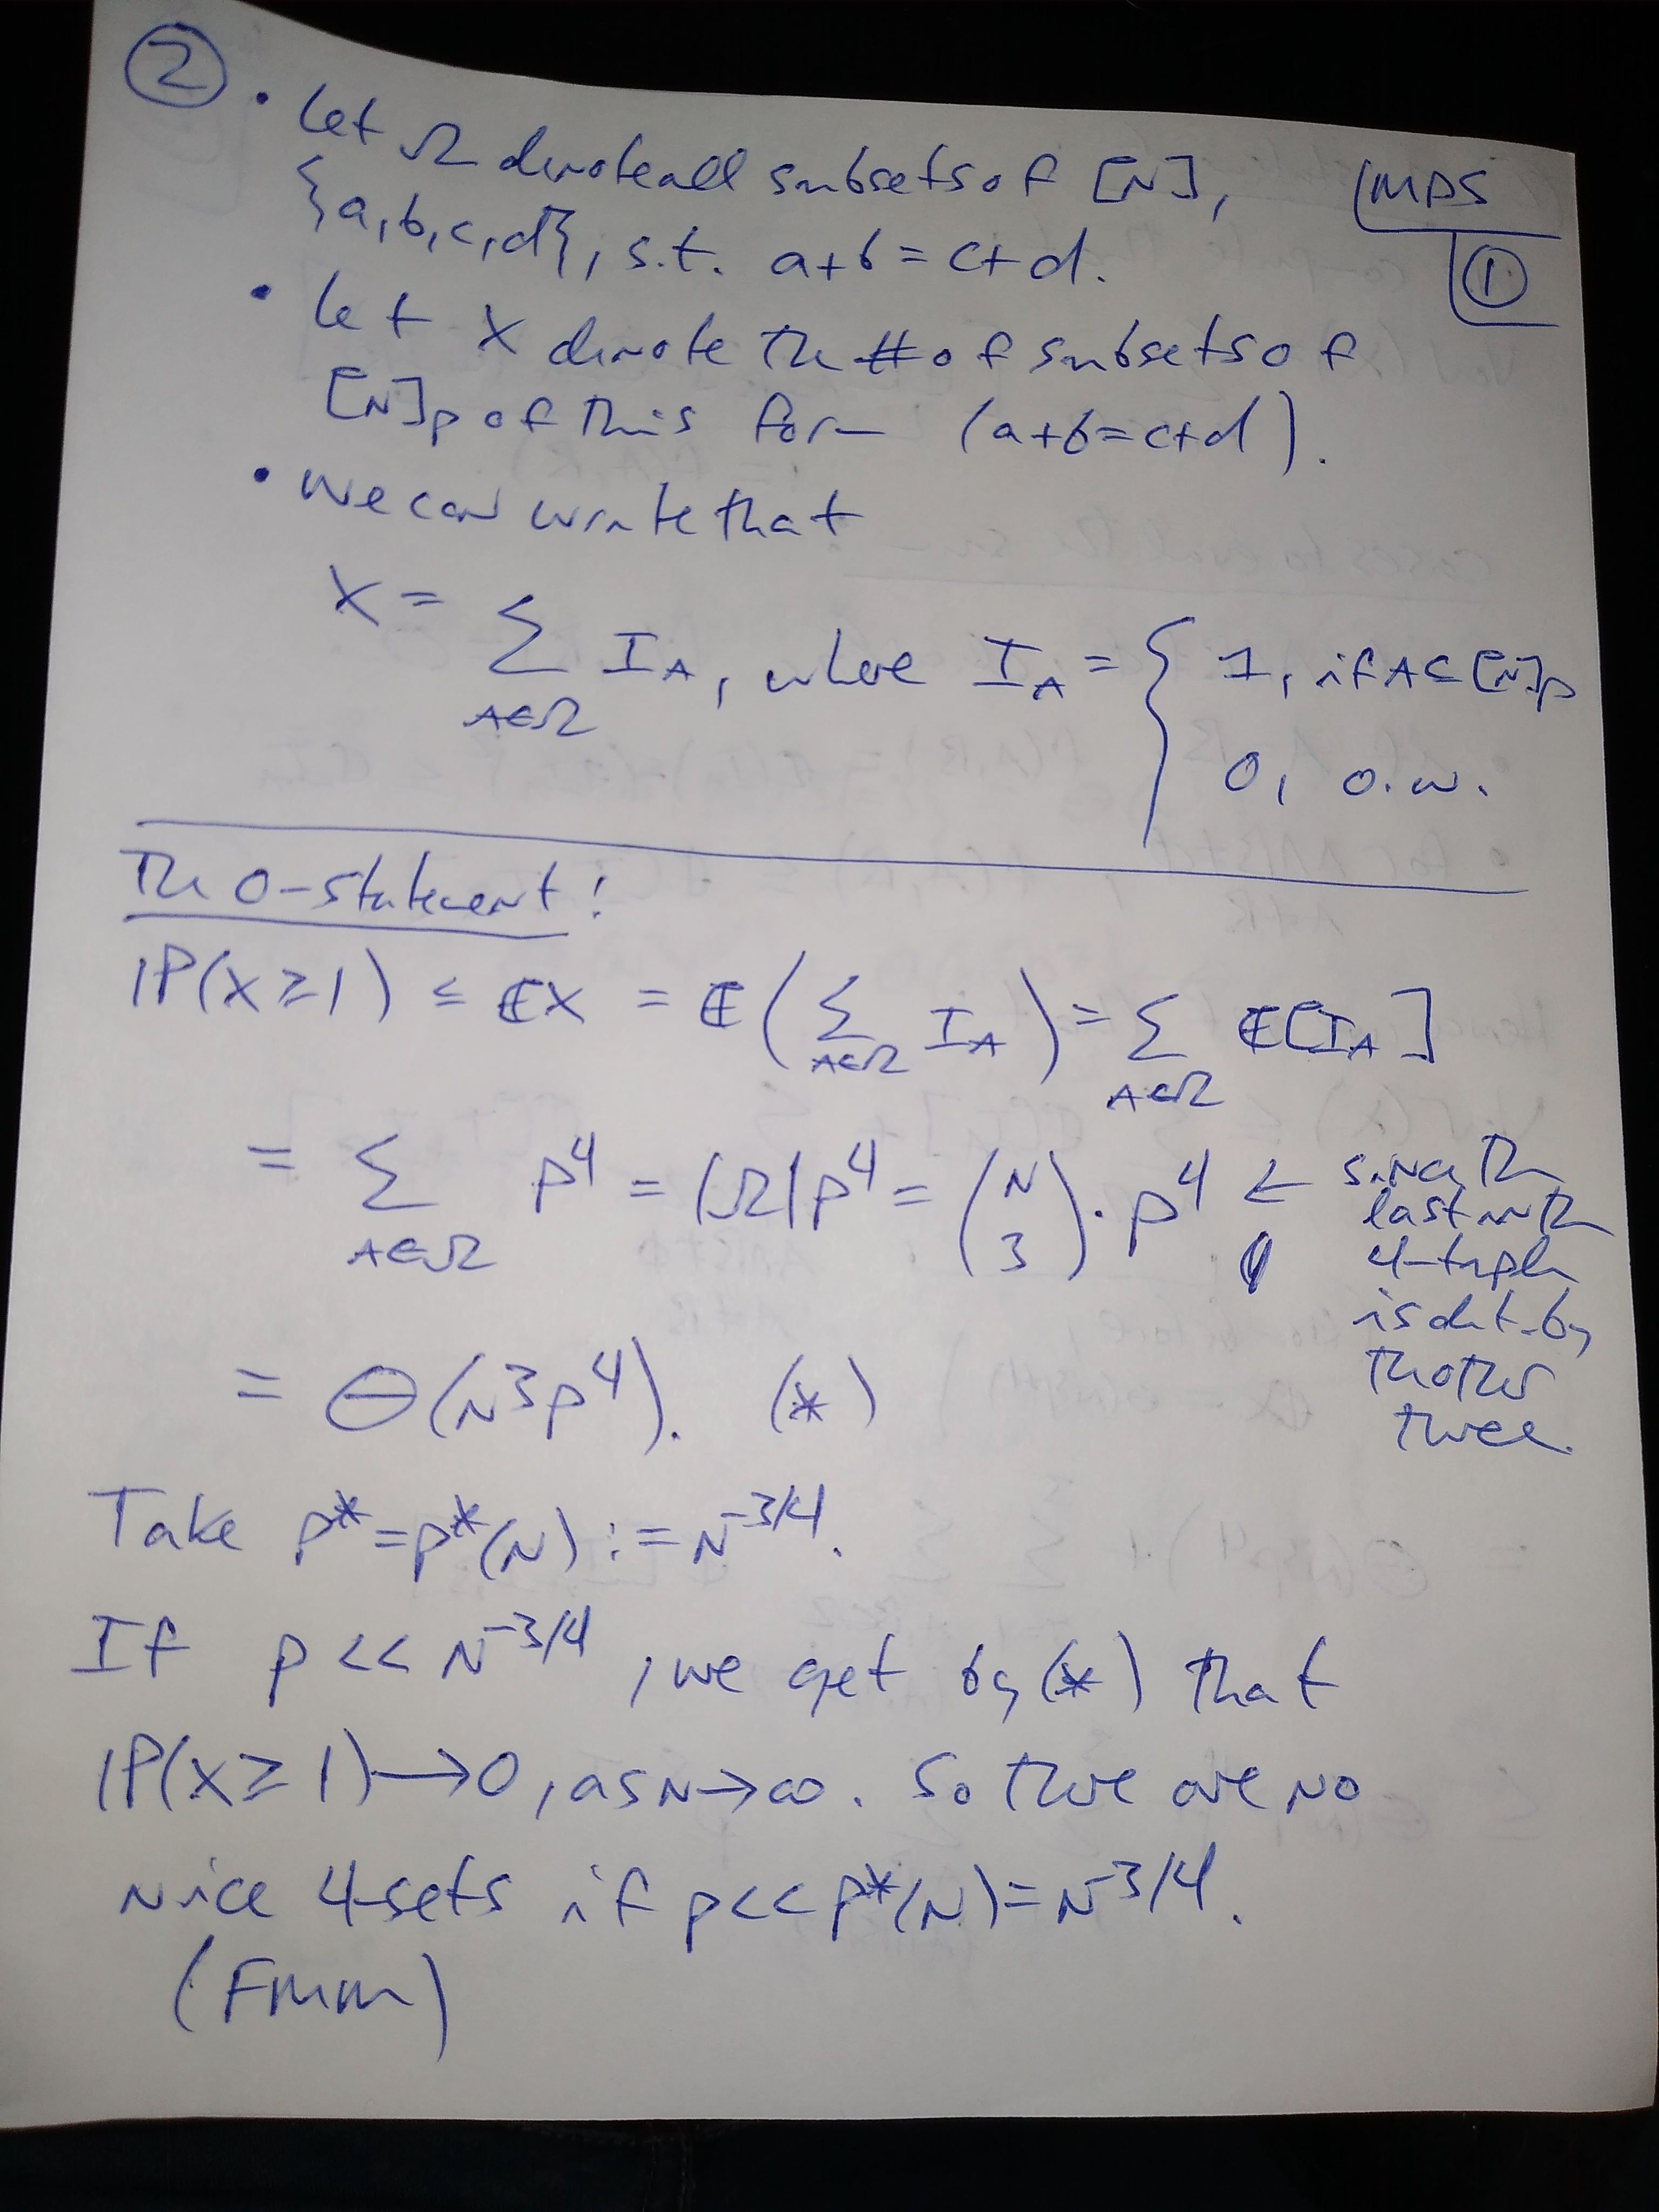 ② • Let Ω denote all subsets of [N],
{a,b,c,d}, s.t. a+b=c+d.
(MDS
①
• Let X denote the # of subsets of
[N]ₚ of this form (a+b=c+d).
• we can write that
X = Σ_{A∈Ω} I_A, where I_A = { 1, if A⊆[N]ₚ
0, o.w.
The 0-statement:
ℙ(X≥1) ≤ 𝔼X = 𝔼(Σ_{A∈Ω} I_A) = Σ_{A∈Ω} 𝔼[I_A]
= Σ_{A∈Ω} p⁴ = |Ω|p⁴ = (N 3)·p⁴ ←
since the
last in the
4-tuple
is det. by
the other
three.
= Θ(N³p⁴). (*)
Take p*=p*(N) := N^{-3/4}.
If p << N^{-3/4}, we get by (*) that
ℙ(X≥1)→0, as N→∞. So there are no
nice 4-sets if p<<p*(N)=N^{-3/4}.
(FMM)